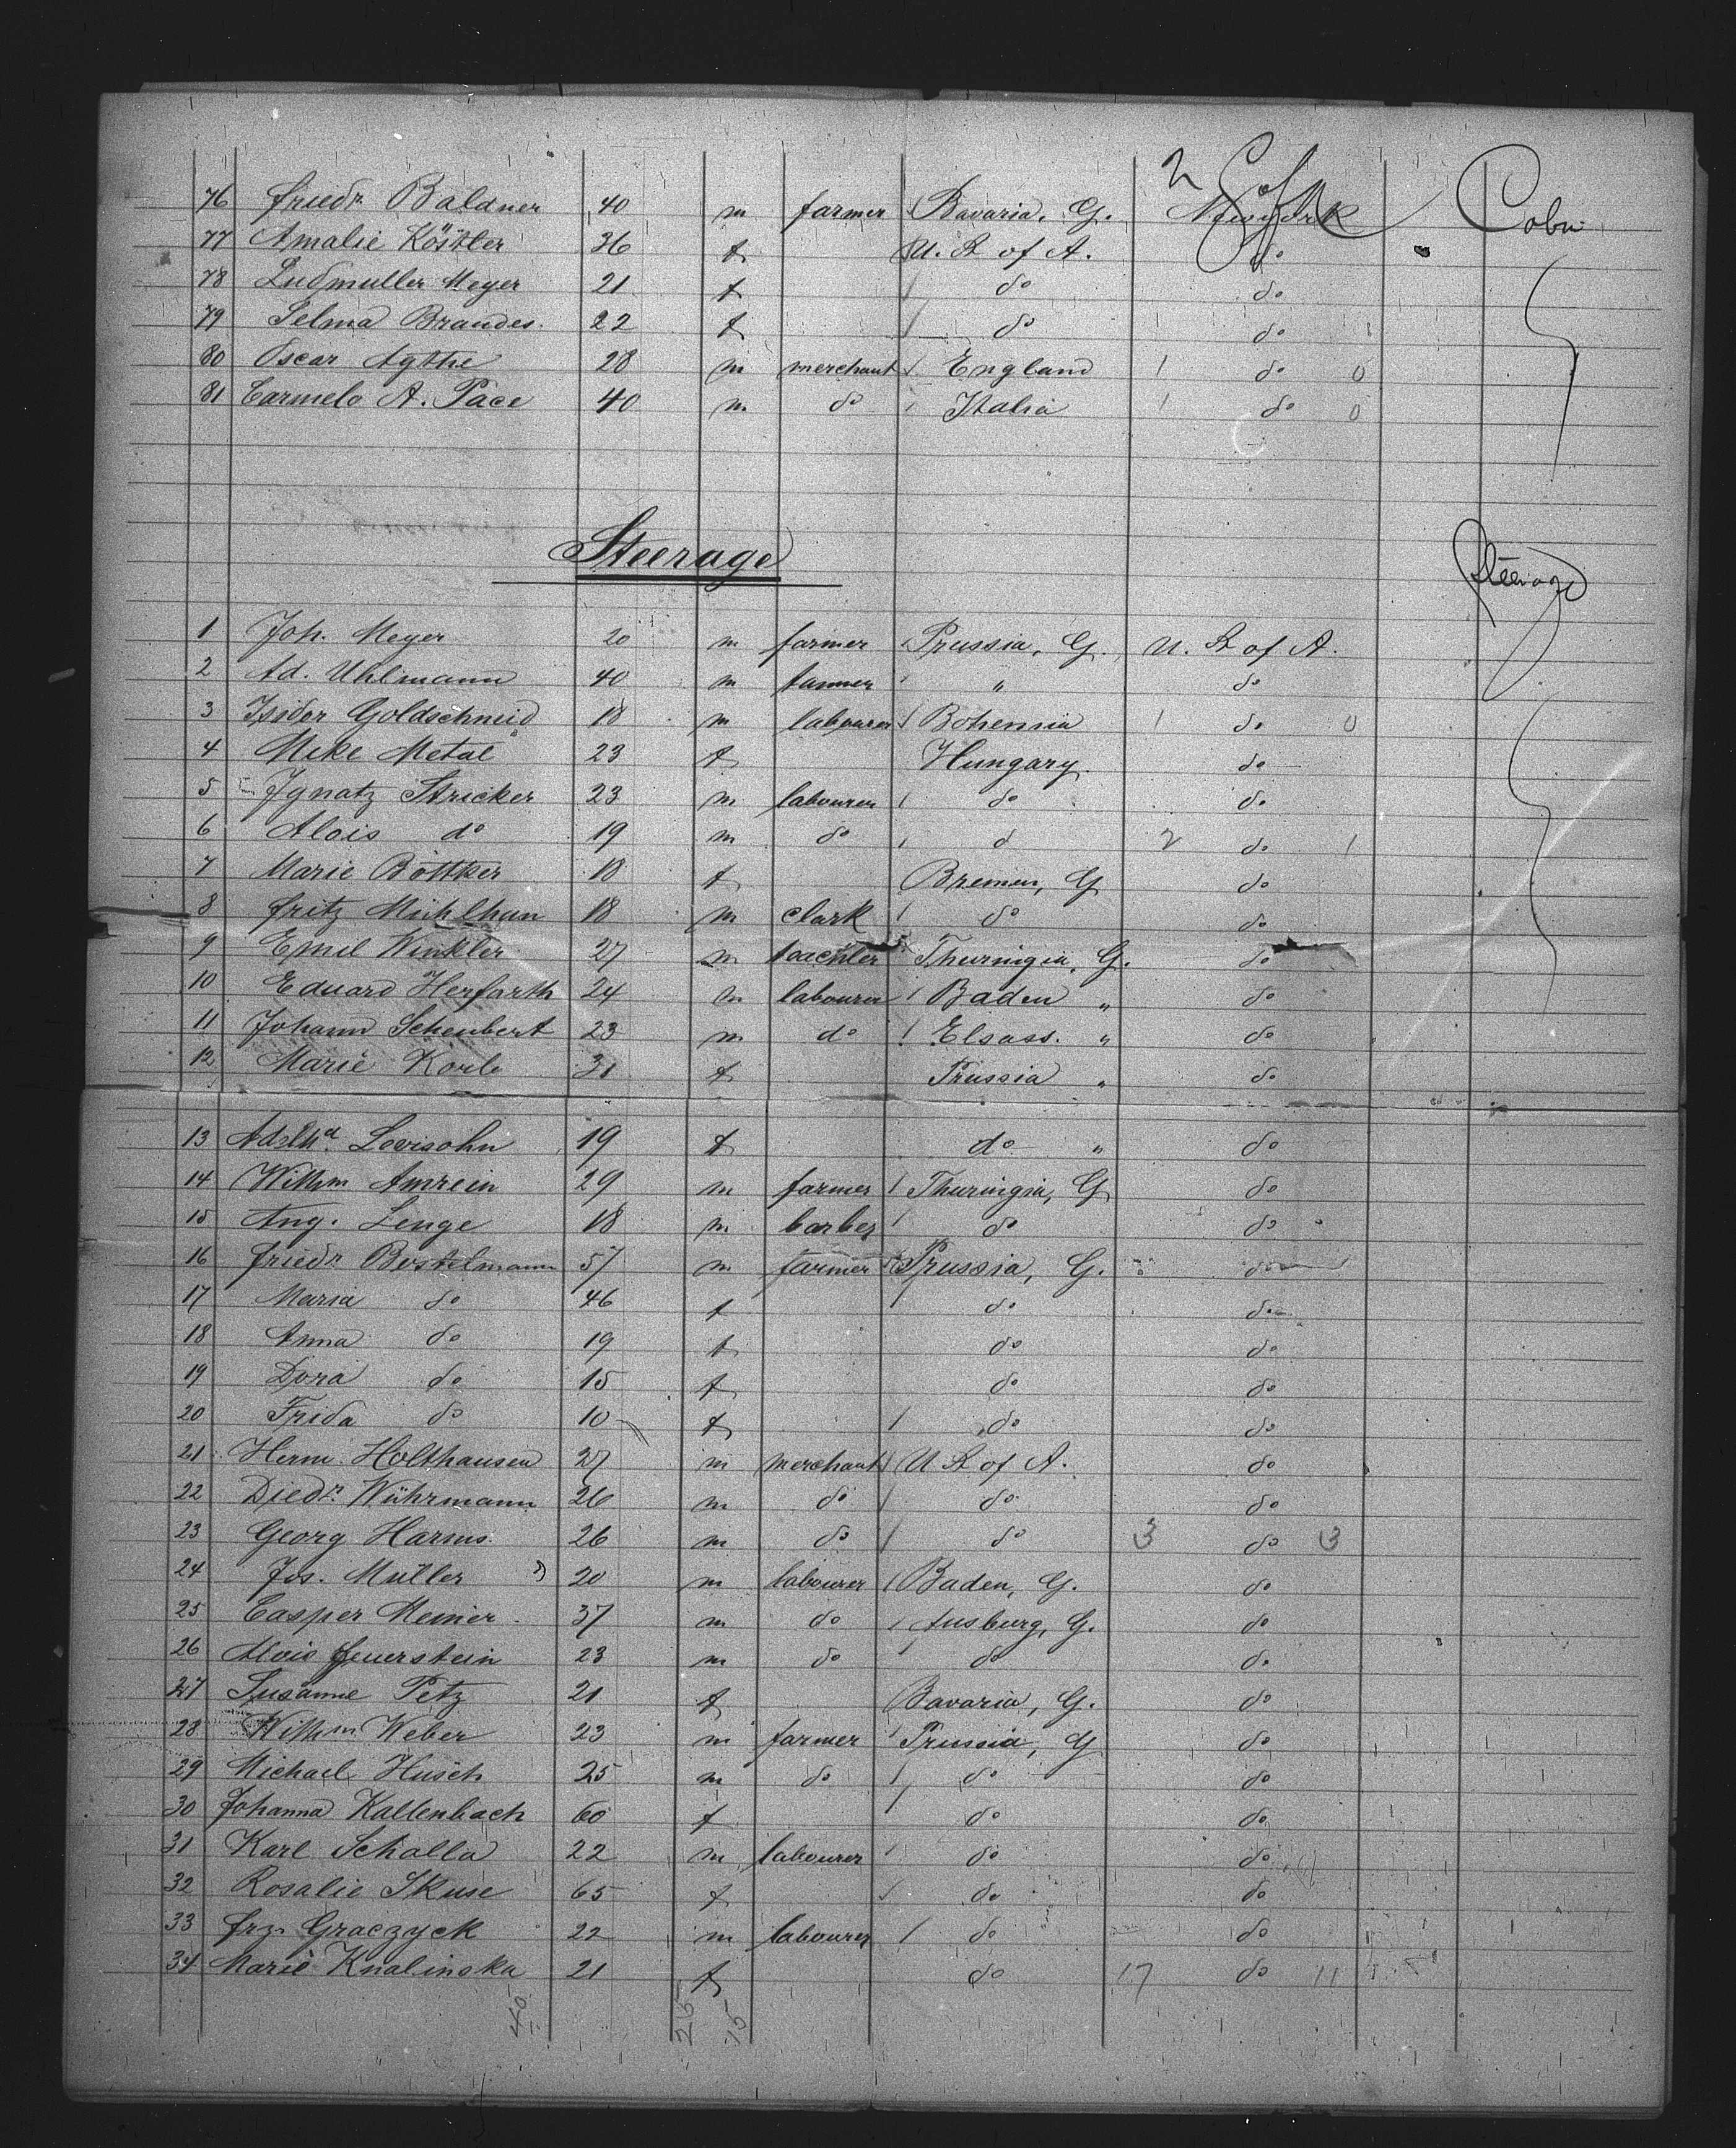 2 C of
76 Friedr. Baldner 40 m farmer Bavaria. G. New york Cabin
77 Amalie Köstler 36 f U. S of A. do
78 Ludmuller Meyer 21 f do do
79 Selma Brandes. 22 f do do
80 Oscar Agthe 28 m merchant England 1 do 0
81 Carmelo A. Pace 40 m do Italia 1 do 0
Steerage
Steerage
1 Joh. Meyer 20 m farmer Prussia, G. U. S of A.
2 Ad. Uhlmann 40 m farmer " do
3 Isidor Goldschmid 18 m labourer Bohemia 1 do 0
4 Meke Metal 23 f Hungary. do
5 Ignatz Stricker 23 m labourer do do
6 Alois do 19 m do d 2 do 1
7 Marie Böttker 18 f Bremen, G do
8 Fritz Mühlhan 18 m clark do do
9 Emil Winkler 27 m Thuringia, G. do
10 Eduard Herfarth 24 m labourer Baden " do
11 Johann Scheubert 23 m do Elsass. " do
12 Marie Korb 31 f Prussia " do
13 Lewisohn 19 f do " do
14 Wilhm Amrein 29 m farmer Thuringia, G do
15 Aug. Lenge 18 m barber do do
16 Friedr Bostelmann 57 m farmer Prussia, G. do
17 Maria do 46 f do do
18 Anna do 19 f do do
19 Dora do 15 f do do
20 Frida do 10 f do do
21 Herm. Holthausen 27 m merchant U S of A. do
22 Diedr. Wührmann 26 m do do do
23 Georg Harms. 26 m do do 3 do 3
24 Jos. Müller 20 m labourer Baden, G. do
25 Casper Meinier. 37 m do Ausburg, G. do
26 Alois Feuerstein 23 m do do do
27 Susanne Petz 21 f Bavaria, G. do
28 Wilhm Weber 23 m farmer Prussia, G do
29 Michael Husch 25 m do do do
30 Johanna Kallenbach 60 f do do
31 Karl Scholla 22 m labourer do do
32 Rosalie Skuse 65 f do do
33 Frz. Graczyck 22 m labourer do do
34 Marie Knalinska 21 f do 17 do 11
40 25 15